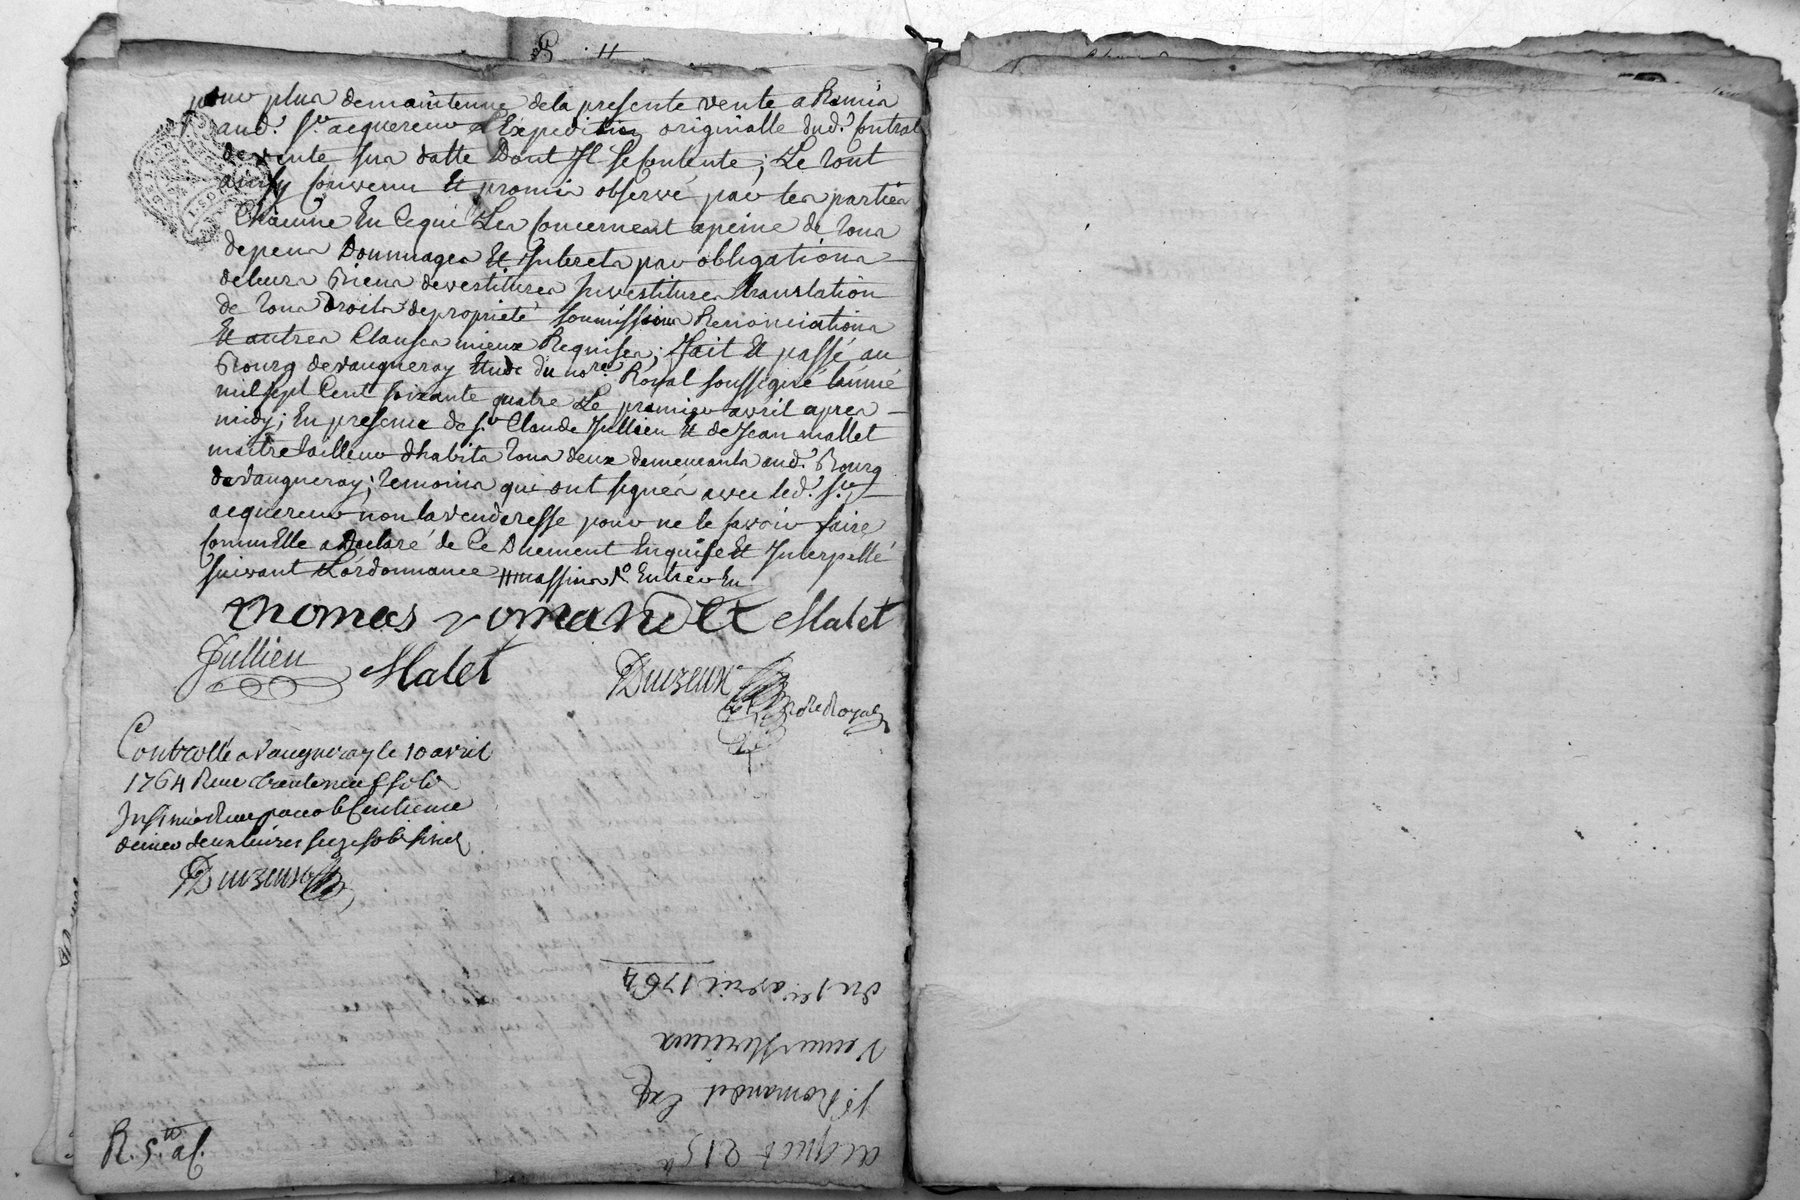 pour plus demaintenue dela presente vente a Remis
aud.t S.r acquereur L'Expedition originalle dud.t Contrat
de vente sus datte Dont Il se Contente; Le tout
ainsy Convenu Et promis observé par les parties
Chacune En Cequi Les Concernent apeine de tous
depens Dommages Et Interets par obligations
de leurs Biens devestitures Investitures translation
de tous Droits de proprieté soumissions Renonciations
Et autres Clauses mieux Requises; Fait Et passé au
Bourg de vaugneray Etude du no.re Royal soussigné L'année
mil sept Cent soixante quatre Le premier avril apres
midy; En presence de S.r Claude Jullien Et de Jean mallet
maitre tailleur d'habits tous deux demeurants aud.t Bourg
de vaugneray; temoins qui ont signés avec led.t S.r
acquereur non la venderesse pour ne le savoir faire
Comm'Elle a Declaré de Ce Duement Enquise Et Interpellé
suivant L'ordonnance
thomas romand Malet
Jullien Malet Duizeux
no.re Royal
Controllé a Vaugneray le 10 avril
1764 Reçu trente neuf sols
Insinué Reçu pour le Centieme
denier deux livres seize sols
Duizeux
du 1er avril 1764
Romand
acquot 215
R. 5.tt